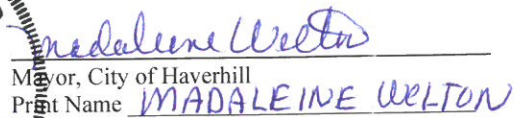 Madaleine Welton
Mayor, City of Haverhill
Print Name MADALEINE WELTON